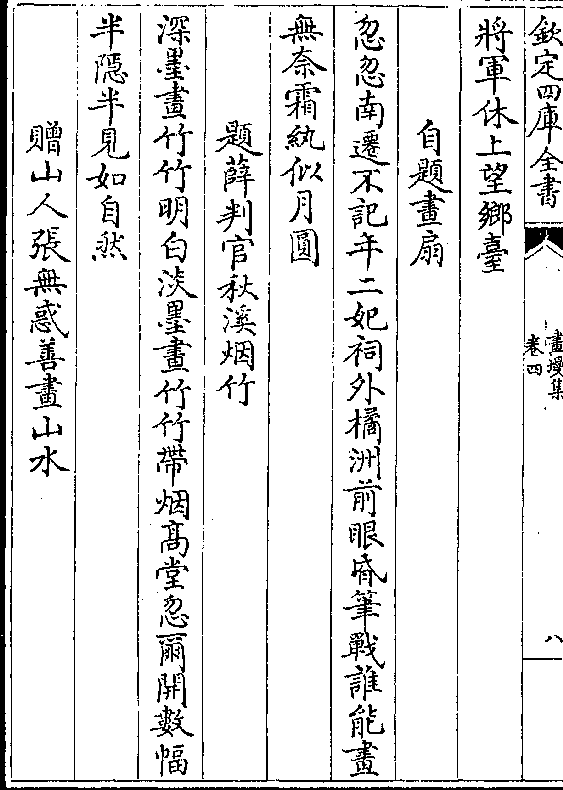 欽定四庫全書
畫墁集
卷四
八
將軍休上望鄉臺
自題畫扇
忽忽南遷不記年二妃祠外橘洲前眼昏筆戰誰能畫
無奈霜紈似月圓
題薛判官秋溪烟竹
深墨畫竹竹明白淡墨畫竹竹帶烟髙堂忽爾開數幅
半隱半見如自然
贈山人張無惑善畫山水